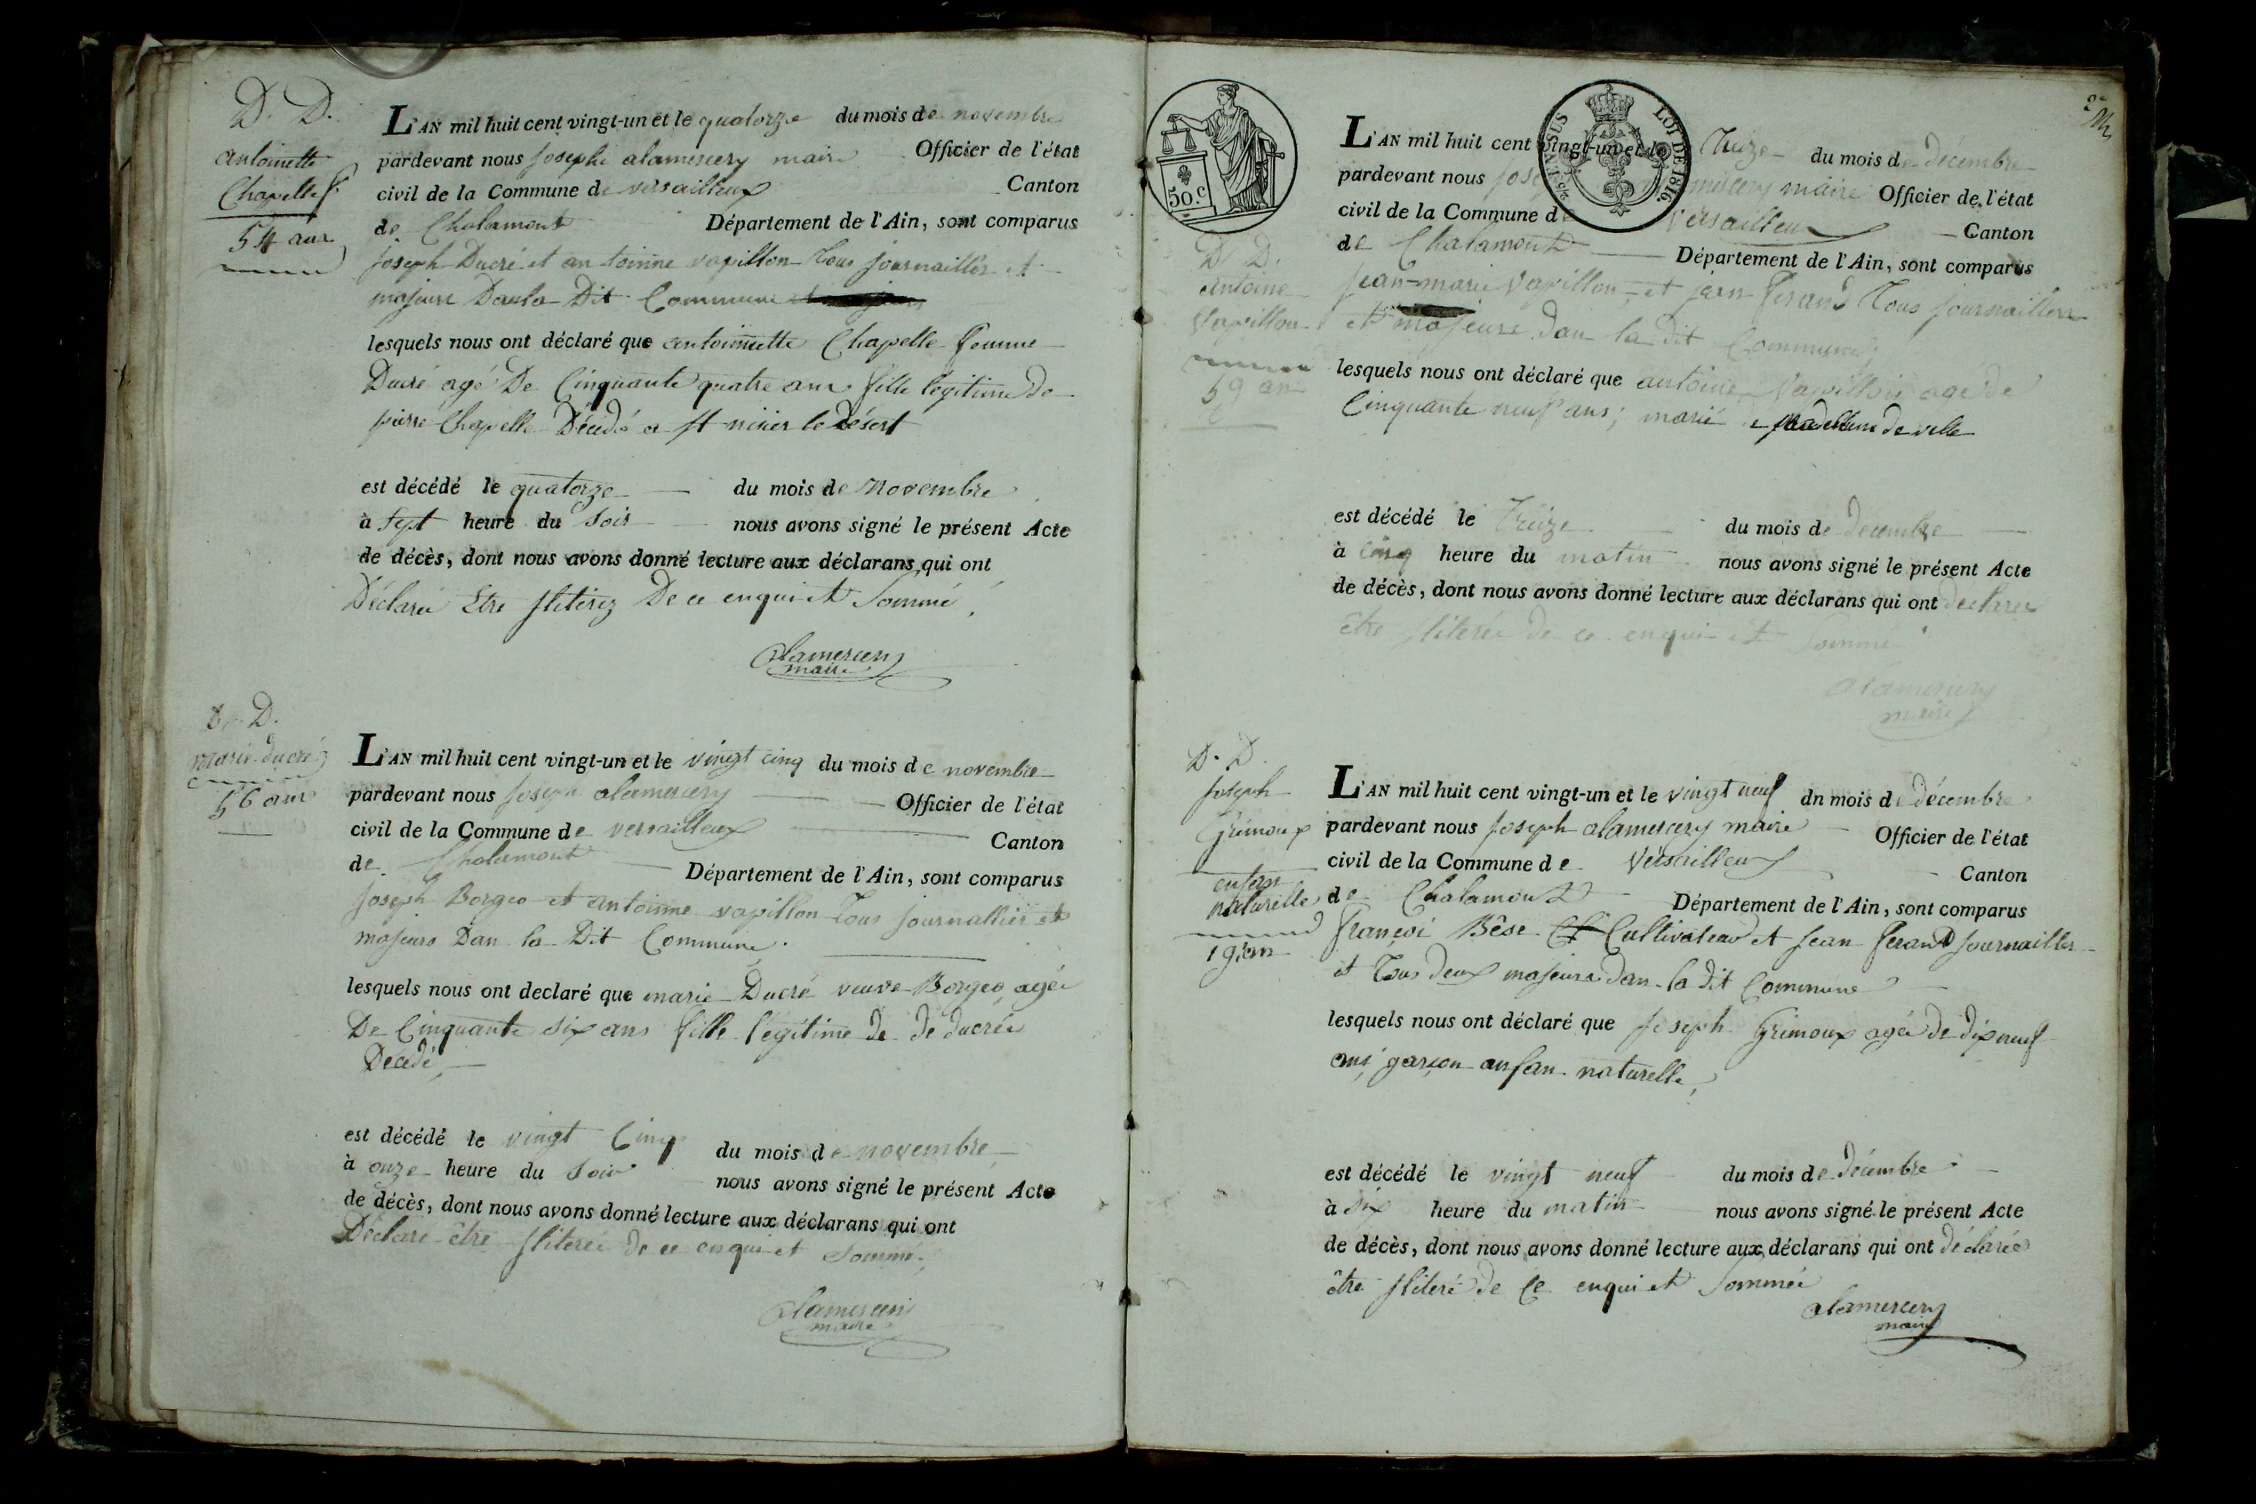 D. D.
antoinette
Chapelle f.
54 ans
L'AN mil huit cent vingt-un et le quatorze du mois de novembre
pardevant nous Joseph alamercery maire Officier de l'état
civil de la Commune de versailleux Canton
de Chalamont Département de l'Ain, sont comparus
Joseph Ducré et antoinne vapillon Tous journallier et
majeure Danla Dit Commune
lesquels nous ont déclaré que antoinette Chapelle femme
Ducré agé De Cinquante quatre ans fille légitime de
pierre Chapelle Décédé a st nizier le Désert
est décédé le quatorze du mois de Novembre
à sept heure du soir nous avons signé le présent Acte
de décès, dont nous avons donné lecture aux déclarans qui ont
Déclaré Etre De ce enqui et Sommé
alamercery
maire
D. D.
marie ducré
56 ans
L'AN mil huit cent vingt-un et le vingt cinq du mois de novembre
pardevant nous Joseph alamercery Officier de l'état
civil de la Commune de versailleux Canton
de Chalamont Département de l'Ain, sont comparus
Joseph Borgeo et antoinne vapillon Tous journallier et
majeurs Dan la Dit Commune
lesquels nous ont declaré que marie Ducré veuve Borgeo agée
De Cinquante six ans fille légitime de De ducrée
Decedé
est décédé le vingt Cinq du mois de novembre
à onze heure du soir nous avons signé le présent Acte
de décès, dont nous avons donné lecture aux déclarans qui ont
Déclaré être de ce enqui et sommé
alamercery
maire
50. C.
LOI DE 1816.
L'AN mil huit cent vingt-un et le Treize du mois de decembre
pardevant nous Joseph alamercery maire Officier de l'état
civil de la Commune de versailleux Canton
de Chalamont Département de l'Ain, sont comparus
D. D.
antoine
Vapillon
59 ans
Jean-marie Vapillon et jean ferand Tous journailliers
et majeure dan la dit Commune
lesquels nous ont déclaré que antoine Vapillon age de
Cinquante neuf ans; marié de ville
est décédé le Treize du mois de decembre
à cinq heure du matin nous avons signé le présent Acte
de décès, dont nous avons donné lecture aux déclarans qui ont declaree
être de ce enqui et sommé
alamercery
maire
D. D.
Joseph
Grimoux
enfan
naturelle
19 an
L'AN mil huit cent vingt-un et le vingt neuf dn mois de décembre
pardevant nous Joseph alamercery maire Officier de l'état
civil de la Commune de Versailleux Canton
de Chalamont Département de l'Ain, sont comparus
françoi Bêse Cultivateur et jean ferand journaillier
et Tous deux majeure dan la dit Commune
lesquels nous ont déclaré que Joseph Grimoux agée de dix neuf
ans garçon anfan naturelle
est décédé le vingt neuf du mois de Décembre
à six heure du matin nous avons signé le présent Acte
de décès, dont nous avons donné lecture aux déclarans qui ont déclarée
être de ce enqui et sommée
alamercery
maire